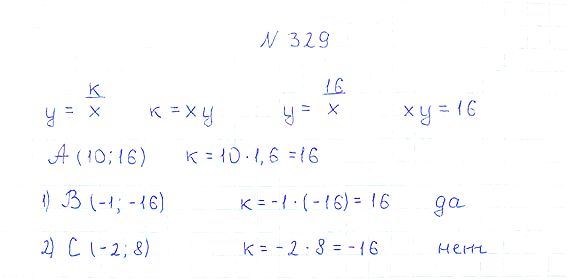 N 329
y = к/x к = xy y = 16/x xy = 16
A (10; 16) к = 10 · 1,6 = 16
1) B (-1; -16) к = -1 · (-16) = 16 да
2) C (-2; 8) к = -2 · 8 = -16 нет